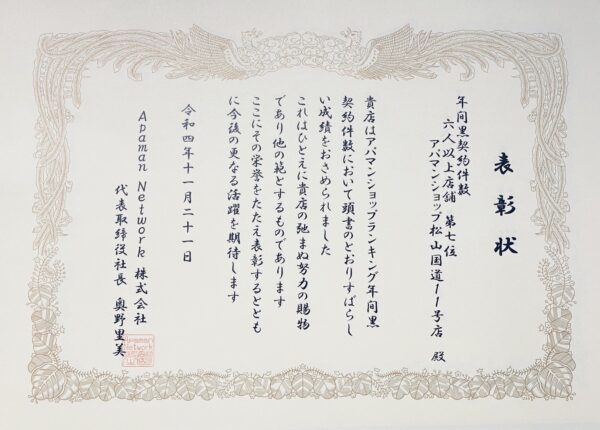 表彰状
年间黒契約件数
六人以上店舗 第七位
アパマンショップ松山国道11号店 殿
貴店はアパマンショップランキング年間黒
契約件数において頭書のとおりすばらし
い成績をおさめられました
これはひとえに貴店の弛まぬ努力の賜物
であり他の範とするものであります
ここにその栄誉をたたえ表彰するととも
に今後の更なる活躍を期待します
令和四年十一月二十一日
Apaman Network 株式会社
代表取締役社長 奥野里美